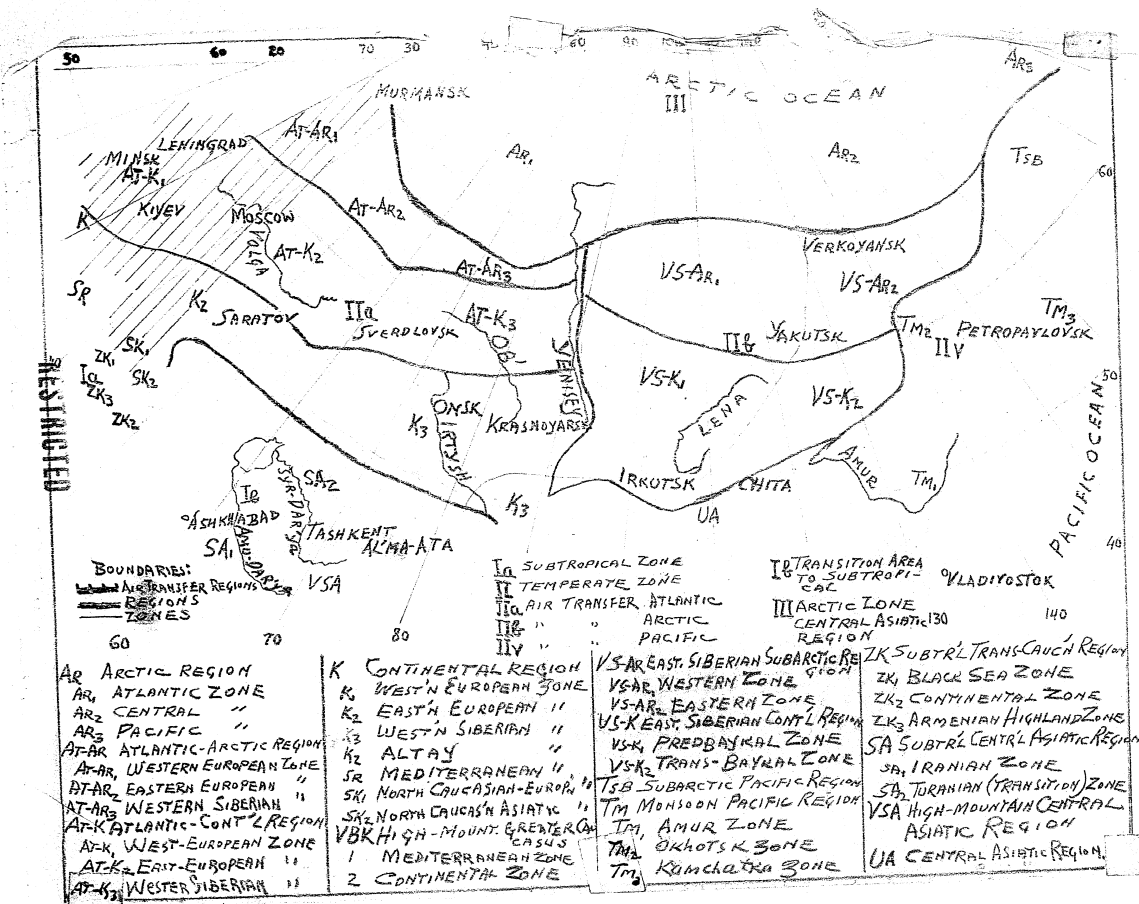 50 60 20 70 30 60 90
ARCTIC OCEAN
III
AR3
MURMANSK
AT-AR1
LENINGRAD
AR1
AR2
TSB
MINSK
AT-K1
60
K
KIYEV
MOSCOW
AT-AR2
VOLGA
AT-K2
AT-AR3
VERKOYANSK
VS-AR1
VS-AR2
SR
K2
SARATOV
IIa
SVERDLOVSK
AT-K3
OB'
YENISEY
IIb
YAKUTSK
TM2
TM3
PETROPAVLOVSK
IIV
SK1
ZK1
Ia
SK2
ZK3
ZK2
RESTRICTED
VS-K1
VS-K2
50
K3
OMSK
IRTYSH
KRASNOYARSK
LENA
PACIFIC OCEAN
AMUR
TM1
IRKUTSK
CHITA
UA
K3
SA2
SYR-DAR'YA
IB
ASHKHABAD
AMU-DAR'YA
SA1
TASHKENT
AL'MA-ATA
VSA
40
VLADIVOSTOK
BOUNDARIES:
AIR TRANSFER REGIONS
REGIONS
ZONES
Ia SUBTROPICAL ZONE
II TEMPERATE ZONE
IIa AIR TRANSFER ATLANTIC
IIB " " ARCTIC
IIV " " PACIFIC
IB TRANSITION AREA
TO SUBTROPI-
CAL
III ARCTIC ZONE
CENTRAL ASIATIC
REGION
130
140
60 70 80
AR ARCTIC REGION
AR1 ATLANTIC ZONE
AR2 CENTRAL "
AR3 PACIFIC "
AT-AR ATLANTIC-ARCTIC REGION
AT-AR1 WESTERN EUROPEAN ZONE
AT-AR2 EASTERN EUROPEAN "
AT-AR3 WESTERN SIBERIAN "
AT-K ATLANTIC-CONT'L REGION
AT-K1 WEST-EUROPEAN ZONE
AT-K2 EAST-EUROPEAN "
AT-K3 WESTER SIBERIAN "
K CONTINENTAL REGION
K1 WEST'N EUROPEAN ZONE
K2 EAST'N EUROPEAN "
K3 WEST'N SIBERIAN "
K2 ALTAY "
SR MEDITERRANEAN "
SK1 NORTH CAUCASIAN-EUROP'N "
SK2 NORTH CAUCAS'N ASIATIC "
VBK HIGH-MOUNT. GREATER CAU
CASUS
1 MEDITERRANEAN ZONE
2 CONTINENTAL ZONE
VS-AR EAST. SIBERIAN SUBARCTIC RE
GION
VS-AR1 WESTERN ZONE
VS-AR2 EASTERN ZONE
VS-K EAST. SIBERIAN CONT'L REGION
VS-K1 PREDBAYKAL ZONE
VS-K2 TRANS-BAYKAL ZONE
TSB SUBARCTIC PACIFIC REGION
TM MONSOON PACIFIC REGION
TM1 AMUR ZONE
TM2 OKHOTSK ZONE
TM3 KAMCHATKA ZONE
ZK SUBTR'L TRANS-CAUC'N REGION
ZK1 BLACK SEA ZONE
ZK2 CONTINENTAL ZONE
ZK3 ARMENIAN HIGHLAND ZONE
SA SUBTR'L CENTR'L ASIATIC REGION
SA1 IRANIAN ZONE
SA2 TURANIAN (TRANSITION) ZONE
VSA HIGH-MOUNTAIN CENTRAL
ASIATIC REGION
UA CENTRAL ASIATIC REGION.